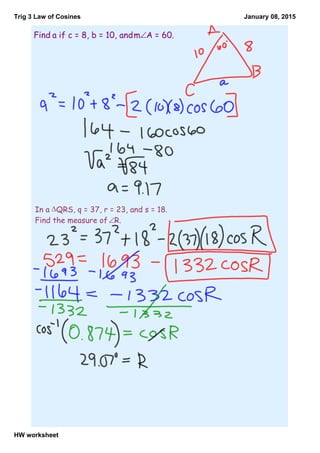 Trig 3 Law of Cosines January 08, 2015
Find a if c = 8, b = 10, and m∠A = 60.
A
10 60° 8
B
C a
a² = 10² + 8² - 2(10)(8)cos(60)
164 - 160cos60
164 - 80
√a² = √84
a = 9.17
In a △QRS, q = 37, r = 23, and s = 18.
Find the measure of ∠R.
23² = 37² + 18² - 2(37)(18)cosR
529 = 1693 - 1332cosR
-1693 -1693
-1164 = -1332cosR
-1332 -1332
cos⁻¹(0.874) = cosR
29.07° = R
HW worksheet